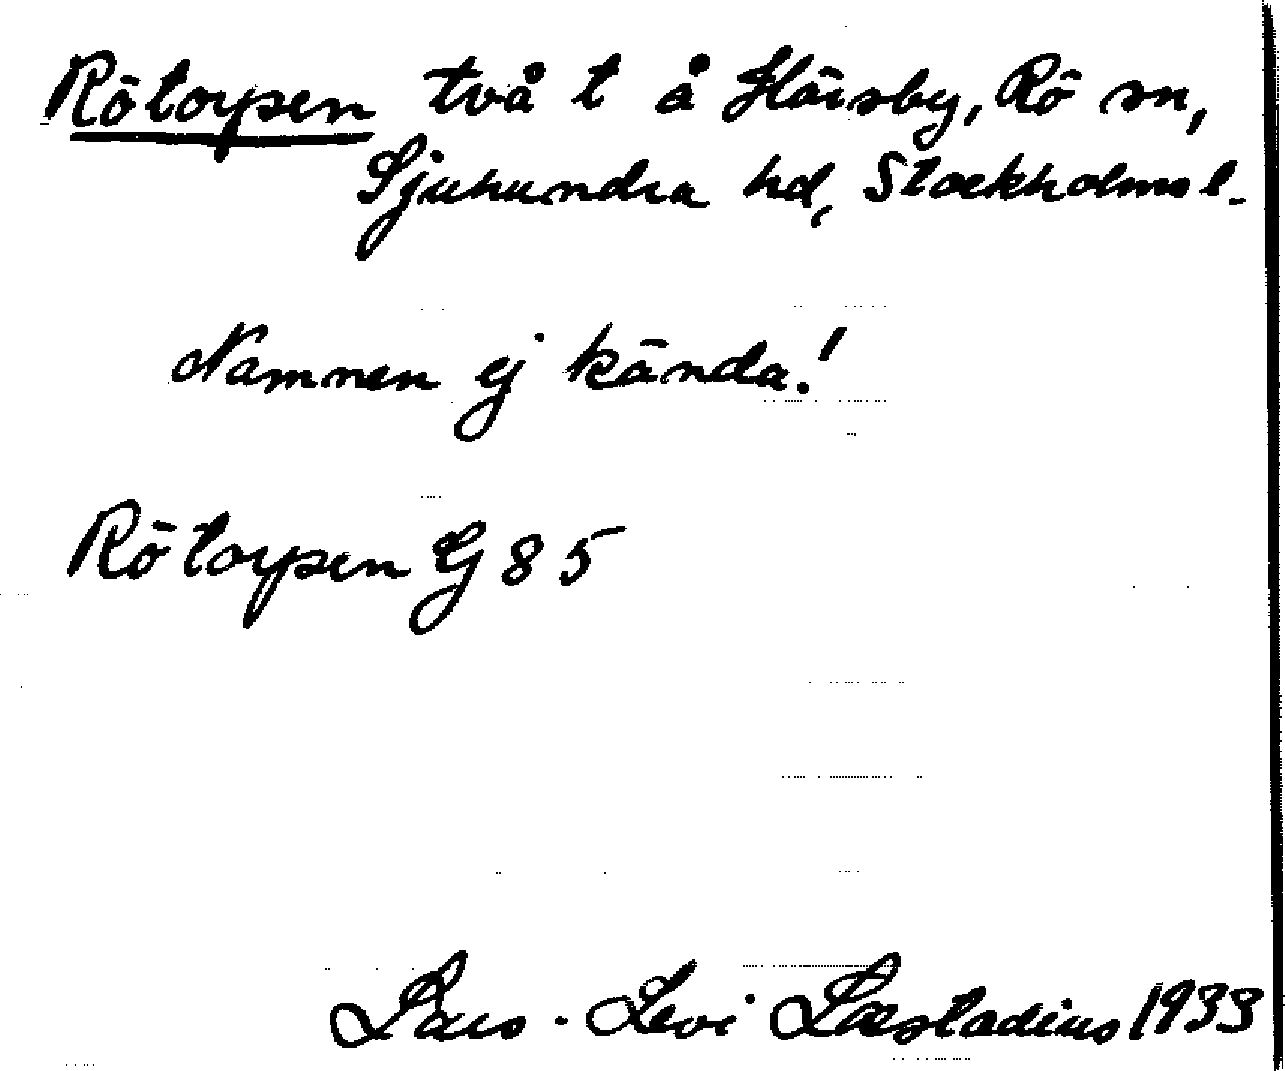 Rötorpen två t å Hårsby, Rö sn,
Sjuhundra hd, Stockholms l.
Namnen ej kända!
Rötorpen GJ 85
Lars-Levi Læstadius 1933